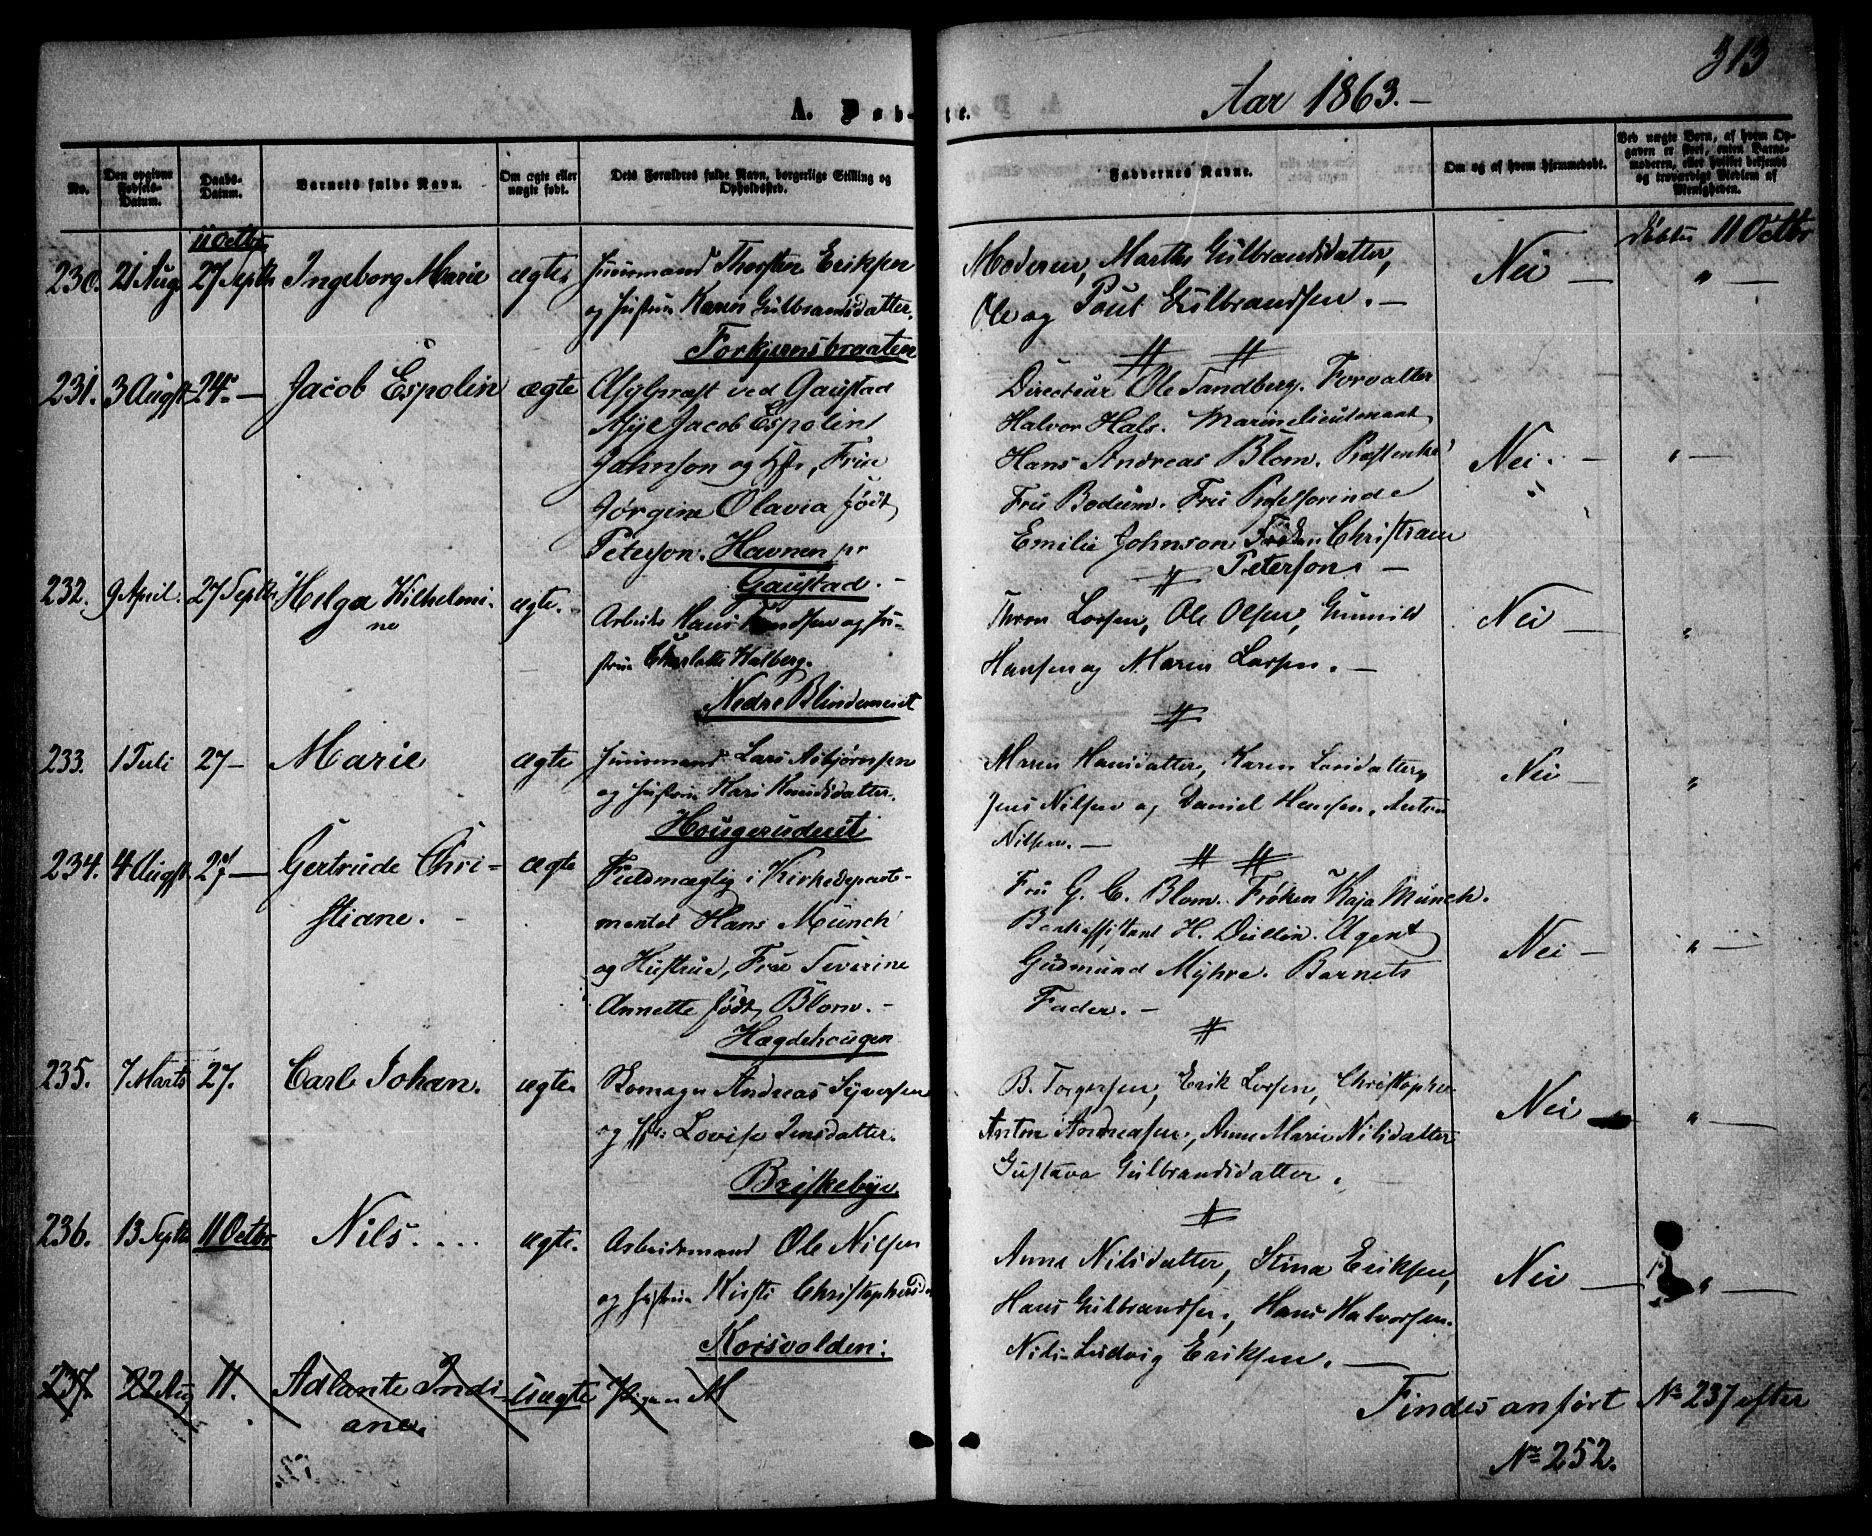 313
Aar 1863.-
A. Døbte.
No.
Den opgivne Fødsels-Datum.
Daabs-Datum.
Barnets fulde Navn.
Om ægte eller uægte født.
Dets Forældres fulde Navn, borgerlige Stilling og Opholdssted.
Faddernes Navne.
Om og af hvem hjemmedøbt.
Ved uægte Børn, af hvem Opgaven er skeet, enten Barnemoderen, eller hvilket bekjendt og troværdigt Medlem af Menigheden.
11 Octbr
11 Octbr
230. 21 Aug. 27 Septb Ingeborg Marie ægte Huusmand Thorsten Eriksen
og Hustru Karen Gulbrandsdatter.
Torkjernsbraaten
Moderen, Marthe Gulbrandsdatter,
Ole og Poul Gulbrandsen. -
Nei - " -
231. 3 August 24. - Jacob Espolin ægte Asylpræst ved Gaustad
Asyl Jacob Espolin
Johnson og H., Frue
Jørgine Olavia født
Peterson. Havnen pr
Gaustad. -
Directeur Ole Sandberg. Forvalter
Halvor Hals. Marinelieutenant
Hans Andreas Blom. Præsteenke
Fru Bodum. Fru Professorinde
Emilie Johnson. Frøken Christiane
Peterson. -
Nei. - " -
232. 9 April. 27 Septb Helga Wilhelmi-
ne
ægte. Arbeids. Hans Knudsen og Hu-
stru Charlotte Walberg.
Nedre Blinderneiet
Thron Larsen, Ole Olsen, Gunnild
Hansen og Maren Larsen. -
Nei - "
233. 1 Juli 27 - Marie ægte Huusmand Lars Asbjørnsen
og Hustru Kari Knudsdatter.
Hougerudeiet
Maren Hansdatter, Karen Larsdatter,
Jens Nilsen og Daniel Hansen, Anton
Nilsen. -
Nei - "
234. 4 August 27 - Gertrude Chri-
stiane.
ægte Fuldmægtig i Kirkedeparte-
mentet Hans Münch
og Hustrue, Frue Severine
Annette født Blom. -
Hægdehougen
Fru G. C. Blom. Frøken Kaja Münch.
Bankassistent H. Dullin. Agent
Gudmund Myhre. Barnets
Fader. -
Nei - " -
235. 7 Marts 27. Carl Johan. ægte Andreas Syversen
og H. Lovise Jensdatter.
Briskebye
B. Torgersen, Erik Larsen, Christopher
Anton Andreasen, Anne Marie Nilsdatter
Gustava Gulbrandsdatter.
Nei - " -
236. 13 Septb 11 Octbr Nils. ... ægte. Arbeidsmand Ole Nilsen
og Hustru Kirsti Christophersd.
Korsvolden.
Anne Nilsdatter, Stina Eriksen,
Hans Gulbrandsen, Hans Halvorsen.
Nils Ludvig Eriksen. -
Nei - " -
237. 22 Aug 11. Adlante Indi-
ane
uægte Pigen M
Findes anført No 237 efter
No 252.